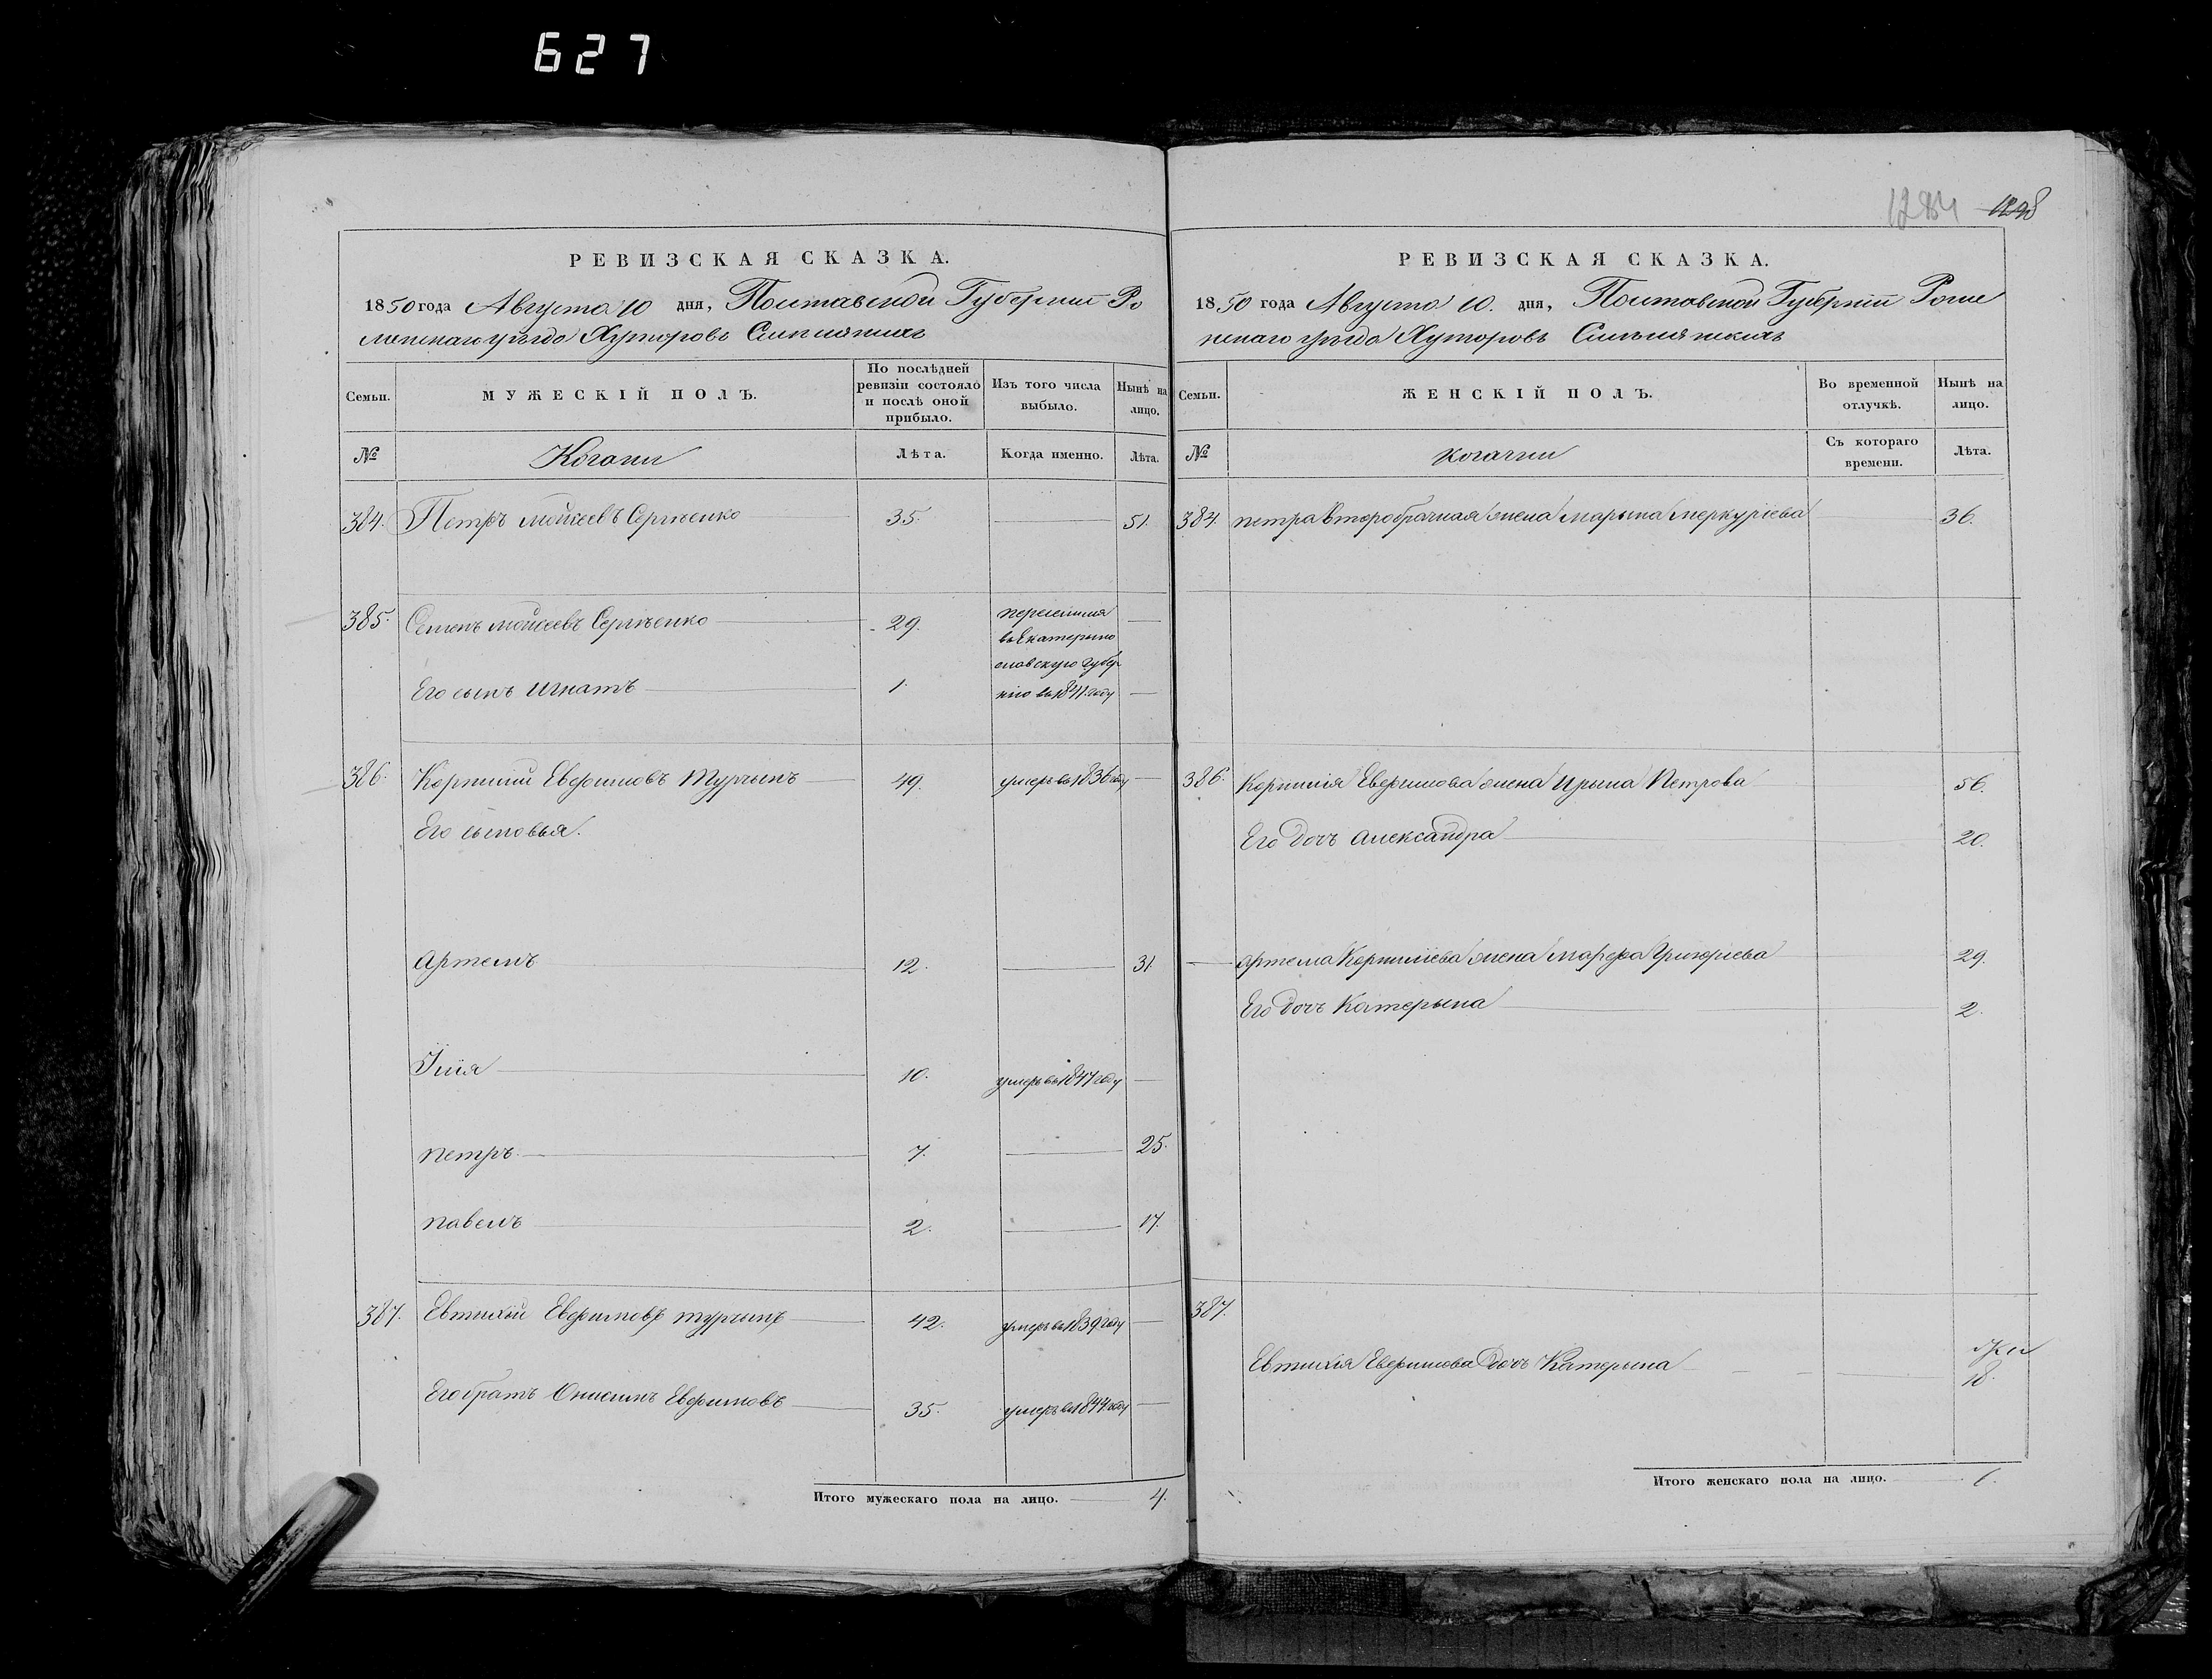 627
1284 1298
РЕВИЗСКАЯ СКАЗКА.
1850 года Августа 10 дня, Полтавской Губерніи Ро
менскаго уѣзда Хуторовъ
Семьи.
МУЖЕСКІЙ ПОЛЪ.
По послѣдней ревизіи состояло и послѣ оной прибыло.
Изъ того числа выбыло.
Нынѣ на лицо.
№
Лѣта.
Когда именно.
Лѣта.
384. Петръ Мойсеевъ Сергѣенко 35. 51.
385. Семенъ Мойсеевъ Сергѣенко 29.
переселился
въ Екатерино
славскую губер
нію въ 1841 году
Его сынъ Игнатъ 1.
386. Корнилій Евфимовъ Турчынъ 49. умеръ въ 1836 году
Его сыновья.
Артемъ 12. 31.
Ілія 10. умеръ въ 1847 году
Петръ 7. 25.
Павелъ 2. 17.
387. Евтихій Евфимовъ Турчынъ 42. умеръ въ 1839 году
Его братъ Онисимъ Евфимовъ 35. умеръ въ 1844 году
Итого мужескаго пола на лицо. 4.
РЕВИЗСКАЯ СКАЗКА.
1850 года Августа 10. дня, Полтавской Губерніи Роме
нскаго уѣзда Хуторовъ
Семьи.
ЖЕНСКІЙ ПОЛЪ.
Во временной отлучкѣ.
Нынѣ на лицо.
№
Съ котораго времени.
Лѣта.
384. Петра второбрачная жена Марьта Меркуріева 36.
386. Корнилія Евфимова жена Ирына Петрова 56.
Его дочь Александра 20.
Артема Корниліева жена Марфа Григоріева 29.
Его дочь Катерына 2.
387.
Евтихія Евфимова дочь Катерына 18.
Итого женскаго пола на лицо.